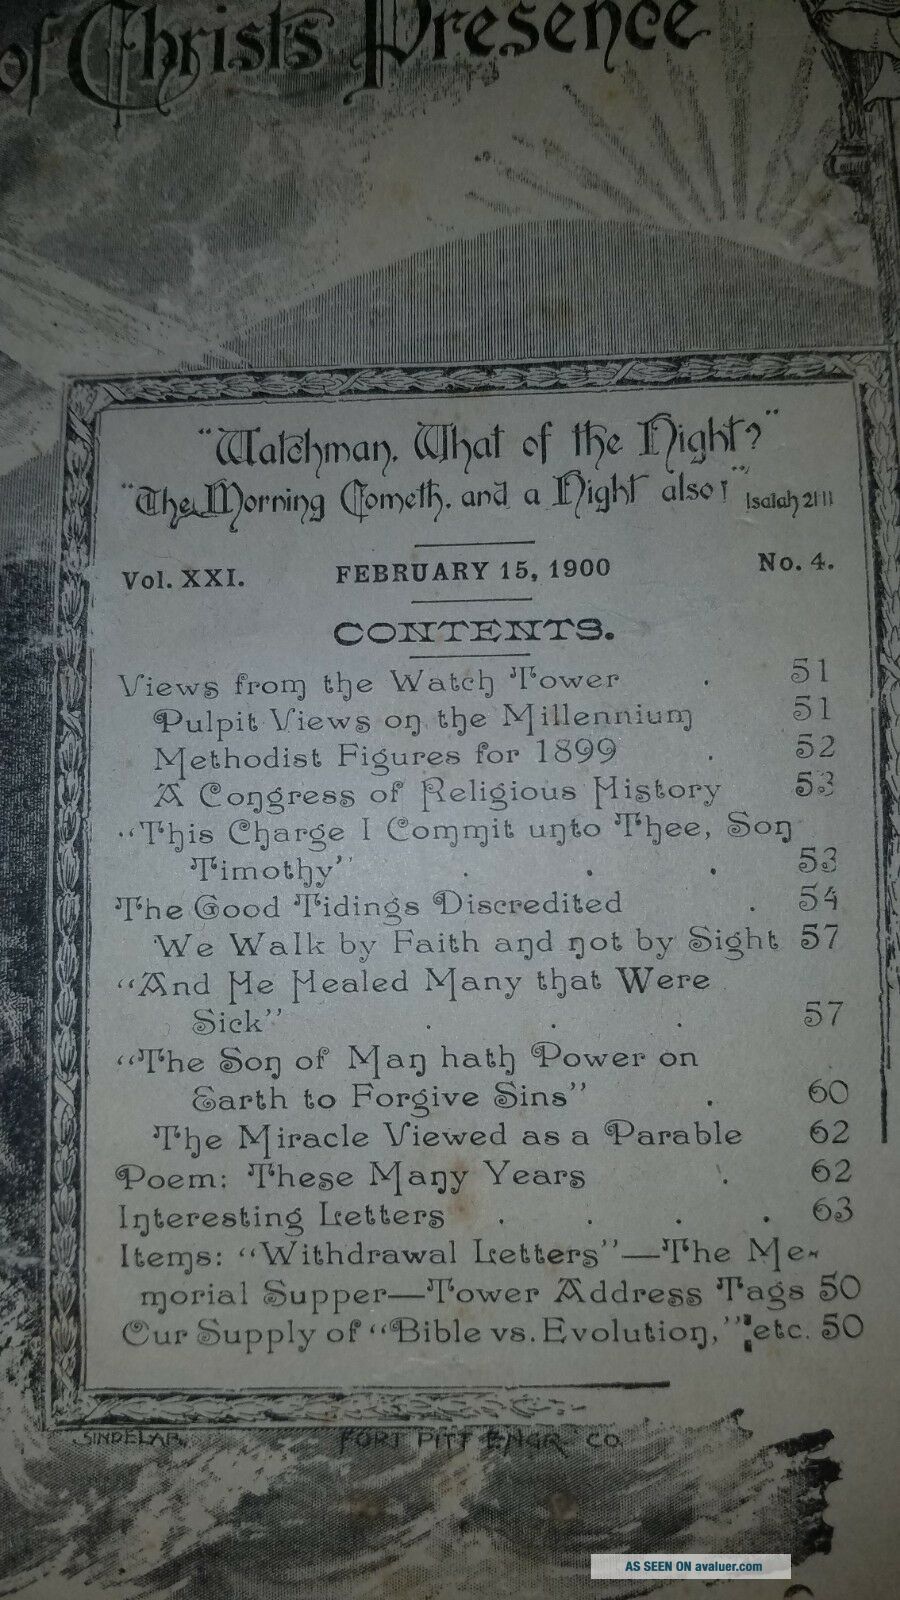 of Christs Presence
"Watchman, What of the Night?"
"The Morning Cometh, and a Night also!" Isaiah 21:11
Vol. XXI. FEBRUARY 15, 1900 No. 4.
CONTENTS.
Views from the Watch Tower . 51
Pulpit Views on the Millennium 51
Methodist Figures for 1899 . 52
A Congress of Religious History 53
"This Charge I Commit unto Thee, Son
Timothy" . . . 53
The Good Tidings Discredited . 54
We Walk by Faith and not by Sight 57
"And He Healed Many that Were
Sick" . . . 57
"The Son of Man hath Power on
Earth to Forgive Sins" . 60
The Miracle Viewed as a Parable 62
Poem: These Many Years . 62
Interesting Letters . . . . 63
Items: "Withdrawal Letters"—The Me-
morial Supper—Tower Address Tags 50
Our Supply of "Bible vs. Evolution," etc. 50
SINDELAR. FORT PITT ENGR. CO.
AS SEEN ON avaluer.com